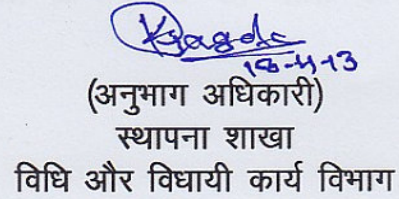 18-4-13
(अनुभाग अधिकारी)
स्थापना शाखा
विधि और विधायी कार्य विभाग